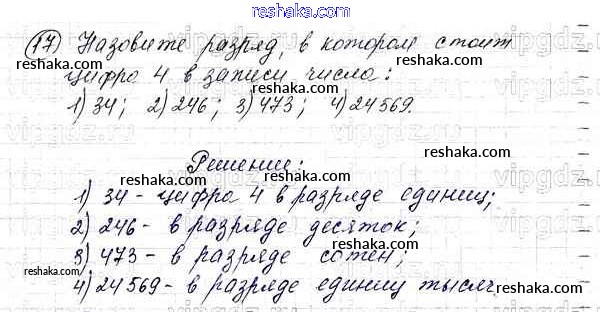 reshaka.com
17) Назовите разряд, в котором стоит
reshaka.com
цифра 4 в записи числа:
1) 34; 2) 246; 3) 473; 4) 24569.
reshaka.com reshaka.com
Решение:
reshaka.com
1) 34 - цифра 4 в разряде единиц;
reshaka.com
2) 246 - в разряде десяток;
reshaka.com
3) 473 - в разряде сотен;
reshaka.com reshaka.com
4) 24569 - в разряде единиц тысяч.
reshaka.com